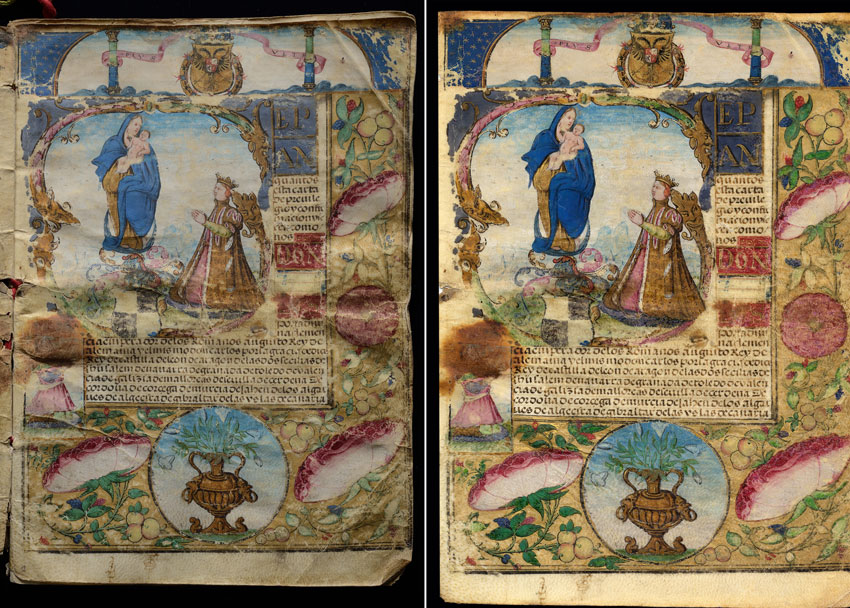 EP
AN
quantos
esta carta
de preuile
gio y confir
macion vie
ren como
nos
DON
na clemen
cia emperador de los Romanos augusto Rey de
alemania y el mismo don carlos por la gracia de dios
Rey de castilla de leon de aragon de las dos secilias de
de navarra de granada de toledo de valen
cia de galizia de mallorcas de seuilla de cerdena de
cordoua de corcega de murcia de jahen de los algar
ues de algecira de gibraltar de las yslas de canaria
EP
AN
quantos
esta carta
de preuile
gio y confir
macion vie
ren como
nos
DON
na clemen
cia emperador de los Romanos augusto Rey de
alemania y el mismo don carlos por la gracia de dios
Rey de castilla de leon de aragon de las dos secilias de
de navarra de granada de toledo de valen
cia de galizia de mallorcas de seuilla de cerdena de
cordoua de corcega de murcia de jahen de los algar
ues de algecira de gibraltar de las yslas de canaria